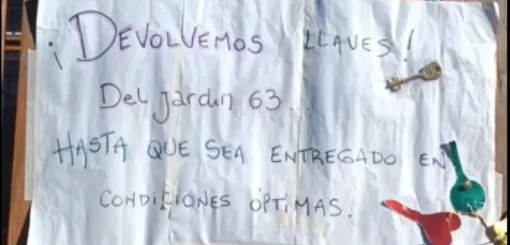 ¡DEVOLVEMOS LLAVES!
Del jardin 63...
HASTA QUE SEA ENTREGADO EN
CONDICIONES OPTIMAS.